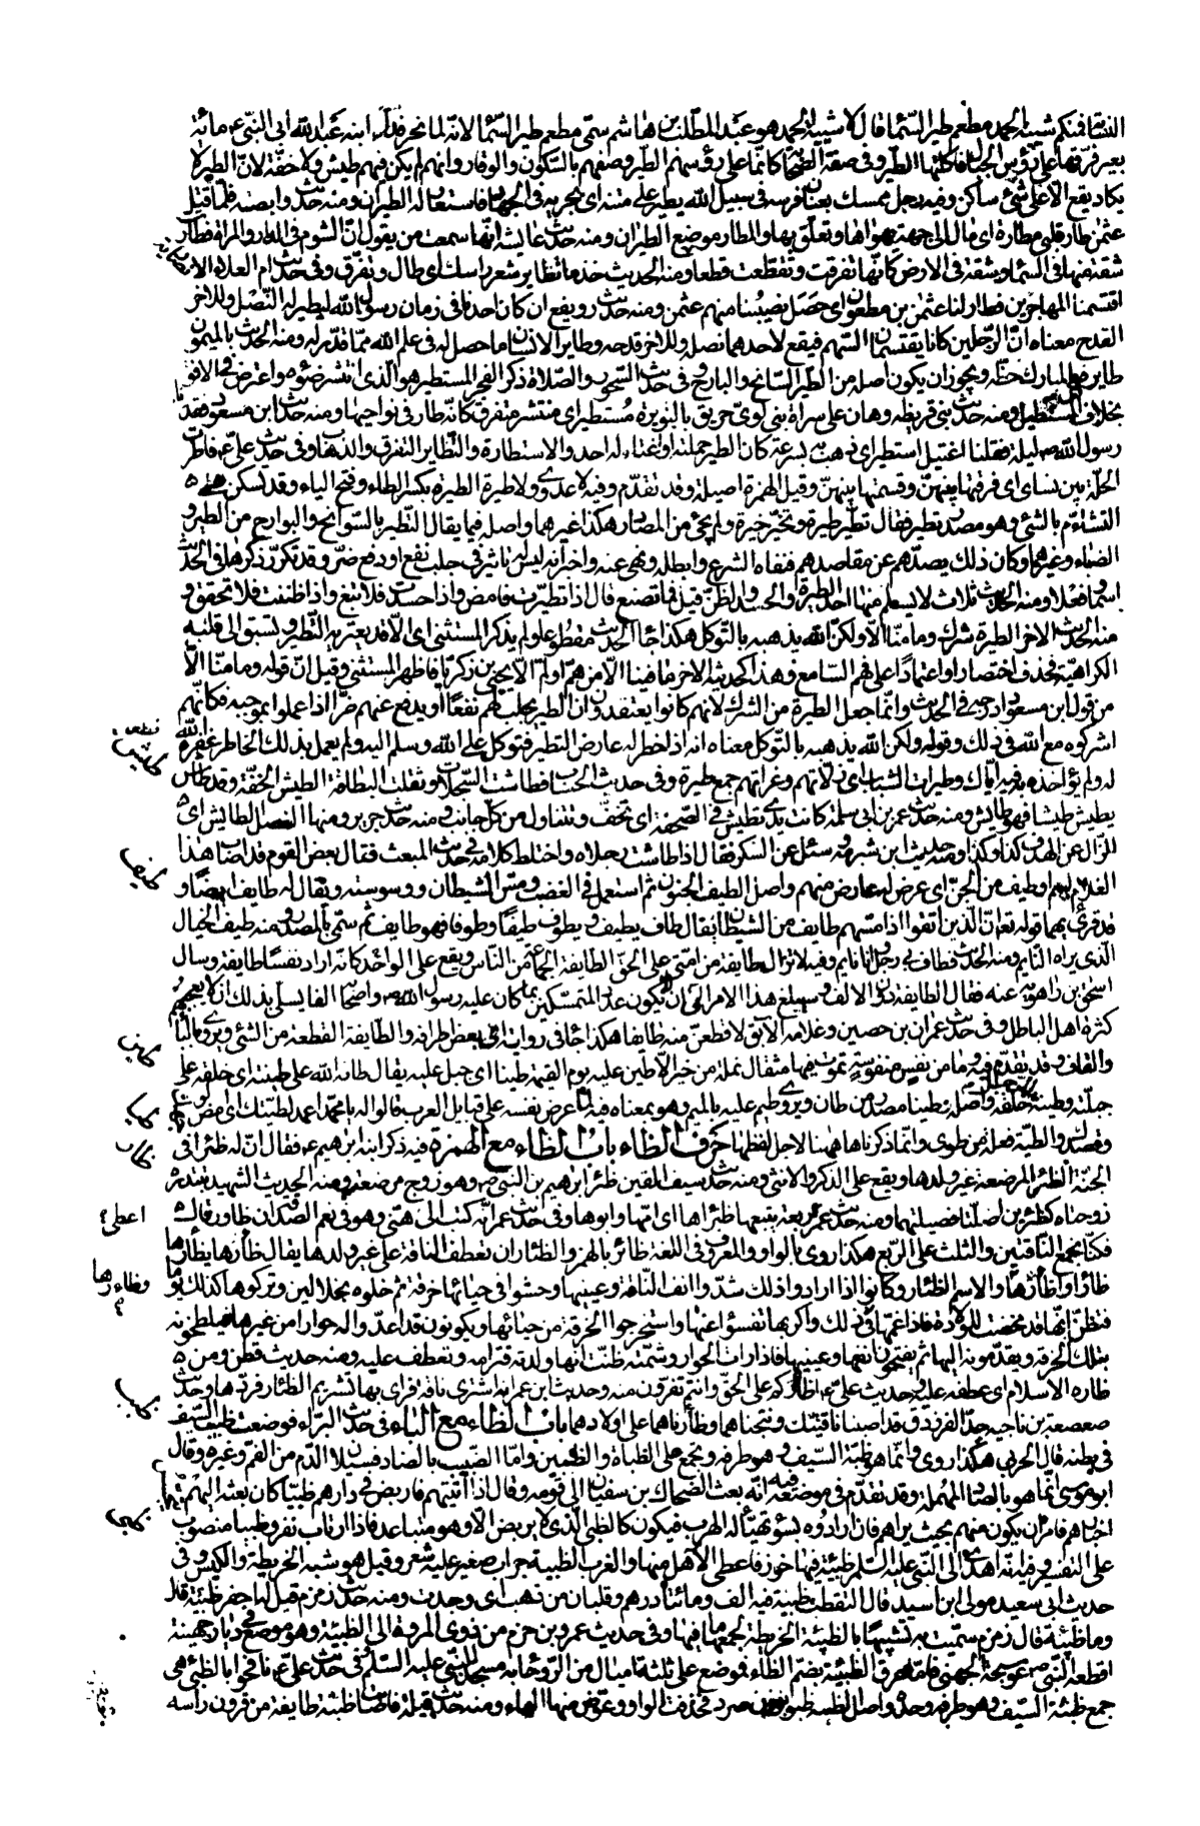 النسابة فمنكم شيبة الحمد مطعم طير السماء قال لا شيبة الحمد هو عبد المطلب بن هاشم سمي مطعم طير السماء لانه لما نحر فداء ابنه عبد الله ابي النبي مائة
بعير فرقها على رؤس الجبال فاكلتها الطير وفي صفة الصحابة كانما على رؤسهم الطير وصفهم بالسكون والوقار وانهم لم يكن فيهم طيش ولا خفة لان الطير لا
يكاد يقع الا على شئ ساكن وفيه رجل ممسك بعنان فرسه في سبيل الله يطير على متنه اي يجريه في الجهاد فاستعار له الطيران ومنه حديث وابصة فلما قتل
عثمن طار قلبي مطاره اي مال الى جهة يهواها وتعلق بها والمطار موضع الطيران ومنه حديث عايشة انها سمعت من يقول ان الشوم في الدار والمراة فطارت
شقة منها في السماء وشقة في الارض كانها تفرقت وتقطعت قطعا ومنه الحديث خذ ما تطاير من شعر راسك اي طال وتفرق وفي حديث ام العلاء الانصارية
اقتسمنا المهاجرين فطار لنا عثمن بن مظعون اي حصل نصيبنا منهم عثمن ومنه حديث رويفع ان كان احدنا في زمان رسول الله ليطير له النصل وللاخر
القدح معناه ان الرجلين كانا يقتسمان السهم فيقع لاحدهما نصله وللاخر قدحه وطاير الانسان ما حصل له في علم الله مما قدر له ومنه الحديث بالميمون
طايره اي المبارك حظه ويجوز ان يكون اصله من الطير السانح والبارح وفي حديث السحور والصلاة ذكر الفجر المستطير هو الذي انتشر ضوءه واعترض في الافق
بخلاف المستطيل ومنه حديث بني قريظة وهان على سراة بني لوي حريق بالبويرة مستطير اي منتشر متفرق كانه طار في نواحيها ومنه حديث ابن مسعود فقدنا
رسول الله ص ليلة فقلنا اغتيل او استطير اي ذهب به بسرعة كان الطير حملته او اغتاله احد والاستطارة والتطاير التفرق والذهاب وفي حديث علي فاطرت
الحلة بين نساي اي فرقتها بينهن وقسمتها بينهن وقيل الهمزة اصلية وقد تقدم وفيه لا عدوى ولا طيرة الطيرة بكسر الطاء وفتح الياء وقد تسكن هي
التشاؤم بالشئ وهو مصدر تطير يقال تطير طيرة وتخير خيرة ولم يجئ من المصادر هكذا غيرهما واصله فيما يقال التطير بالسوانح والبوارح من الطير و
الظباء وغيرهما وكان ذلك يصدهم عن مقاصدهم فنفاه الشرع وابطله ونهى عنه واخبر انه ليس له تاثير في جلب نفع او دفع ضر وقد تكرر ذكرها في الحديث
اسما وفعلا ومنه الحديث ثلاث لا يسلم منها احد الطيرة والحسد والظن قيل فما نصنع قال اذا تطيرت فامض واذا حسدت فلا تبغ واذا ظننت فلا تحقق و
منه الحديث الاخر الطيرة شرك وما منا الا ولكن الله يذهبه بالتوكل هكذا جاء الحديث مقطوعا ولم يذكر المستثنى اي الا قد يعتريه التطير ويسبق الى قلبه
الكراهية فحذف اختصارا واعتمادا على فهم السامع وهذا كحديثه الاخر ما فينا الا من هم او لم الا يحيى بن زكريا فاظهر المستثنى وقيل ان قوله وما منا الا
من قول ابن مسعود ادرجه في الحديث وانما جعل الطيرة من الشرك لانهم كانوا يعتقدون ان الطير يجلب لهم نفعا او يدفع عنهم ضرا اذا عملوا بموجبه فكانهم
اشركوه مع الله في ذلك وقوله ولكن الله يذهبه بالتوكل معناه انه اذا خطر له عارض التطير فتوكل على الله وسلم اليه ولم يعمل بذلك الخاطر غفره الله
له ولم يؤاخذه به وفيه اياك وطيرات الشباب اي زلاتهم وغراتهم جمع طيرة وفي حديث الحساب فطاشت السجلات وثقلت البطاقة الطيش الخفة وقد طاش
يطيش طيشا فهو طايش ومنه حديث عمر بن ابي سلمة كانت يدي تطيش في الصحفة اي تخف وتتناول من كل جانب ومنه حديث جرير ومنها العصل الطايش اي
الزال عن الهدف كذا وكذا ومنه حديث ابن شبرمة وسئل عن السكر فقال اذا طاشت رجلاه واختلط كلامه في حديث المبعث فقال بعض القوم قد اصاب هذا
الغلام لمم او طيف من الجن اي عرض له عارض منهم واصل الطيف الجنون ثم استعمل في الغضب ومس الشيطان ووسوسته ويقال له طايف ايضا و
قد قرئ بهما قوله تعالى ان الذين اتقوا اذا مسهم طايف من الشيطان يقال طاف يطيف ويطوف طيفا وطوفا فهو طايف ثم سمي بالمصدر ومنه طيف الخيال
الذي يراه النايم ومنه الحديث فطاف بي رجل وانا نايم وفيه لا تزال طايفة من امتي على الحق الطايفة الجماعة من الناس ويقع على الواحد كانه اراد نفسا طايفة وسال
اسحق بن راهويه عنه فقال الطايفة دون الالف وسيبلغ هذا الامر الى ان يكون عدد المتمسكين بما كان عليه رسول الله ص واصحابه الفا يسلي بذلك ان لا يعجبهم
كثرة اهل الباطل وفي حديث عمران بن حصين وغلامه الآبق لاقطعن منه طايفا هكذا جاء في رواية اي بعض اطرافه والطايفة القطعة من الشئ ويروى بالباء
والقاف وقد تقدم فيه ما من نفس منفوسة تموت فيها مثقال نملة من خير الا طين عليه يوم القيمة طينا اي جبل عليه يقال طانه الله على طينته اي خلقه على
جبلته وطينة الرجل خلقه واصله وطينا مصدر من طان ويروى طيم عليه بالميم وهو بمعناه فيه لما عرض نفسه على قبايل العرب قالوا له يا محمد اعمد لطيتك اي امض لوجهك
وقصدك والطية فعلة من طوى وانما ذكرناها ههنا لاجل لفظها حرف الظاء باب الظاء مع الهمزة فيه ذكر ابنه ابرهيم فقال ان له ظئرا في
الجنة الظئر المرضعة غير ولدها ويقع على الذكر والانثى ومنه حديث سيف القين ظئر ابرهيم بن النبي ص وهو زوج مرضعته ومنه الحديث الشهيد تبتدره
زوجتاه كظئرين اضلتا فصيليهما ومنه حديث عمر وربعة يتبعها ظئراها اي امها وابوها وفي حديث عمر انه كتب الى هني وهو في نعم الصدقة ان ظاور قال
فكنا نجمع الناقتين والثلث على الربع هكذا روي بالواو والمعروف في اللغة ظائر بالهمز والظئار ان تعطف الناقة على غير ولدها يقال ظأرها يظأرها
ظأرا واظأرها والاسم الظئار وكانوا اذا ارادوا ذلك شدوا انف الناقة وعينيها وحشوا في حيائها خرقة ثم خلوه بخلالين وتركوها كذلك يوما
فتظن انها قد مخضت للولادة فاذا غمها ذلك واكربها نفسوا عنها واستخرجوا الخرقة من حيائها ويكونون قد اعدوا له حوارا من غيرها فيلطخونه
بتلك الخرقة ويقدمونه اليها ثم يفتحون انفها وعينيها فاذا رات الحوار وشمته ظنت انها ولدته فترامه وتعطف عليه ومنه حديث قطن ومن
ظاره الاسلام اي عطفه عليه وحديث علي اظاركم على الحق وانتم تفرون منه وحديث ابن عمر انه اشترى ناقة فراى بها تشريم الظئار فردها وحديث
صعصعة بن ناجية جد الفرزدق قد اصبنا ناقتيك ونتجناهما وظأرناهما على اولادهما باب الظاء مع الباء في حديث البراء فوضعت ظبيب السيف
في بطنه قال الحربي هكذا روي وانما هو ظبة السيف وهو طرفه وتجمع على الظباة والظبين واما الضبيب بالضاد فسيلان الدم من الفم وغيره وقال
ابو موسى انما هو بالصاد المهملة وقد تقدم في موضعه فيه انه بعث الضحاك بن سفيان الى قومه وقال اذا اتيتهم فاربض في دارهم ظبيا كان بعثه اليهم يتجسس
اخبارهم فامره ان يكون منهم بحيث يراهم فان ارادوه بسوء تهيأ له الهرب فيكون كالظبي الذي لا يربض الا وهو متباعد فاذا ارتاب نفر وظبيا منصوب
على التفسير وفيه انه اهدى الى النبي عليه السلم ظبية فيها خرز فاعطى الآهل منها والعزب الظبية جراب صغير عليه شعر وقيل هو شبه الخريطة والكيس وفي
حديث ابي سعيد مولى ابي اسيد قال التقطت ظبية فيها الف ومائتا درهم وقلبان من ذهب اي وجدت ومنه حديث زمزم قيل له احفر ظبية قال
وما ظبية قال زمزم سميت به تشبيها بالظبية الخريطة لجمعها ما فيها وفي حديث عمرو بن حزم من ذي المروة الى الظبية وهو موضع في ديار جهينة
اقطعه النبي ص عوسجة الجهني فاما عرق الظبية بضم الظاء فموضع على ثلثة اميال من الروحاء به مسجد للنبي عليه السلم في حديث علي نافحوا بالظبى هي
جمع ظبة السيف وهو طرفه وحده واصل الظبة ظبو بوزن صرد فحذفت الواو وعوض منها الهاء ومنه حديث قيلة فاصابت ظبته طايفة من قرون راسه
طيش
طيف
طين
طيا
ظأر
اعطى
ظبب
ظبي